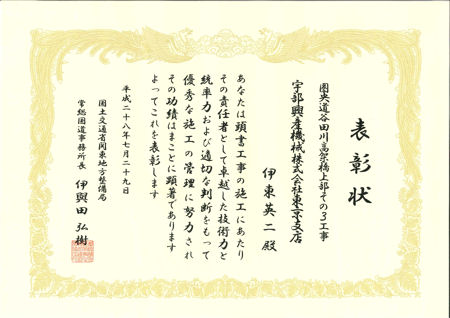 表彰状
圏央道谷田川高架橋上部その3工事
宇部興産機械株式会社東京支店
伊東英二殿
あなたは頭書工事の施工にあたり
その責任者として卓越した技術力と
統率力および適切な判断をもって
優秀な施工の管理に努力され
その功績はまことに顕著であります
よってこれを表彰します
平成二十八年七月二十九日
国土交通省関東地方整備局
常総国道事務所長 伊與田弘樹